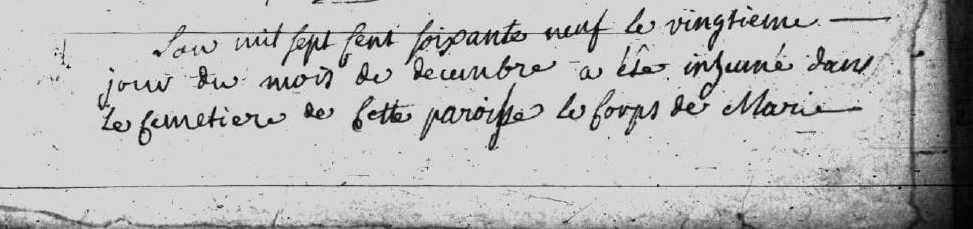 Lan mil sept sent soixante neuf le vingtieme
jour du mois de decembre a été inhumé dans
le semetiere de sette paroisse le corps de Marie